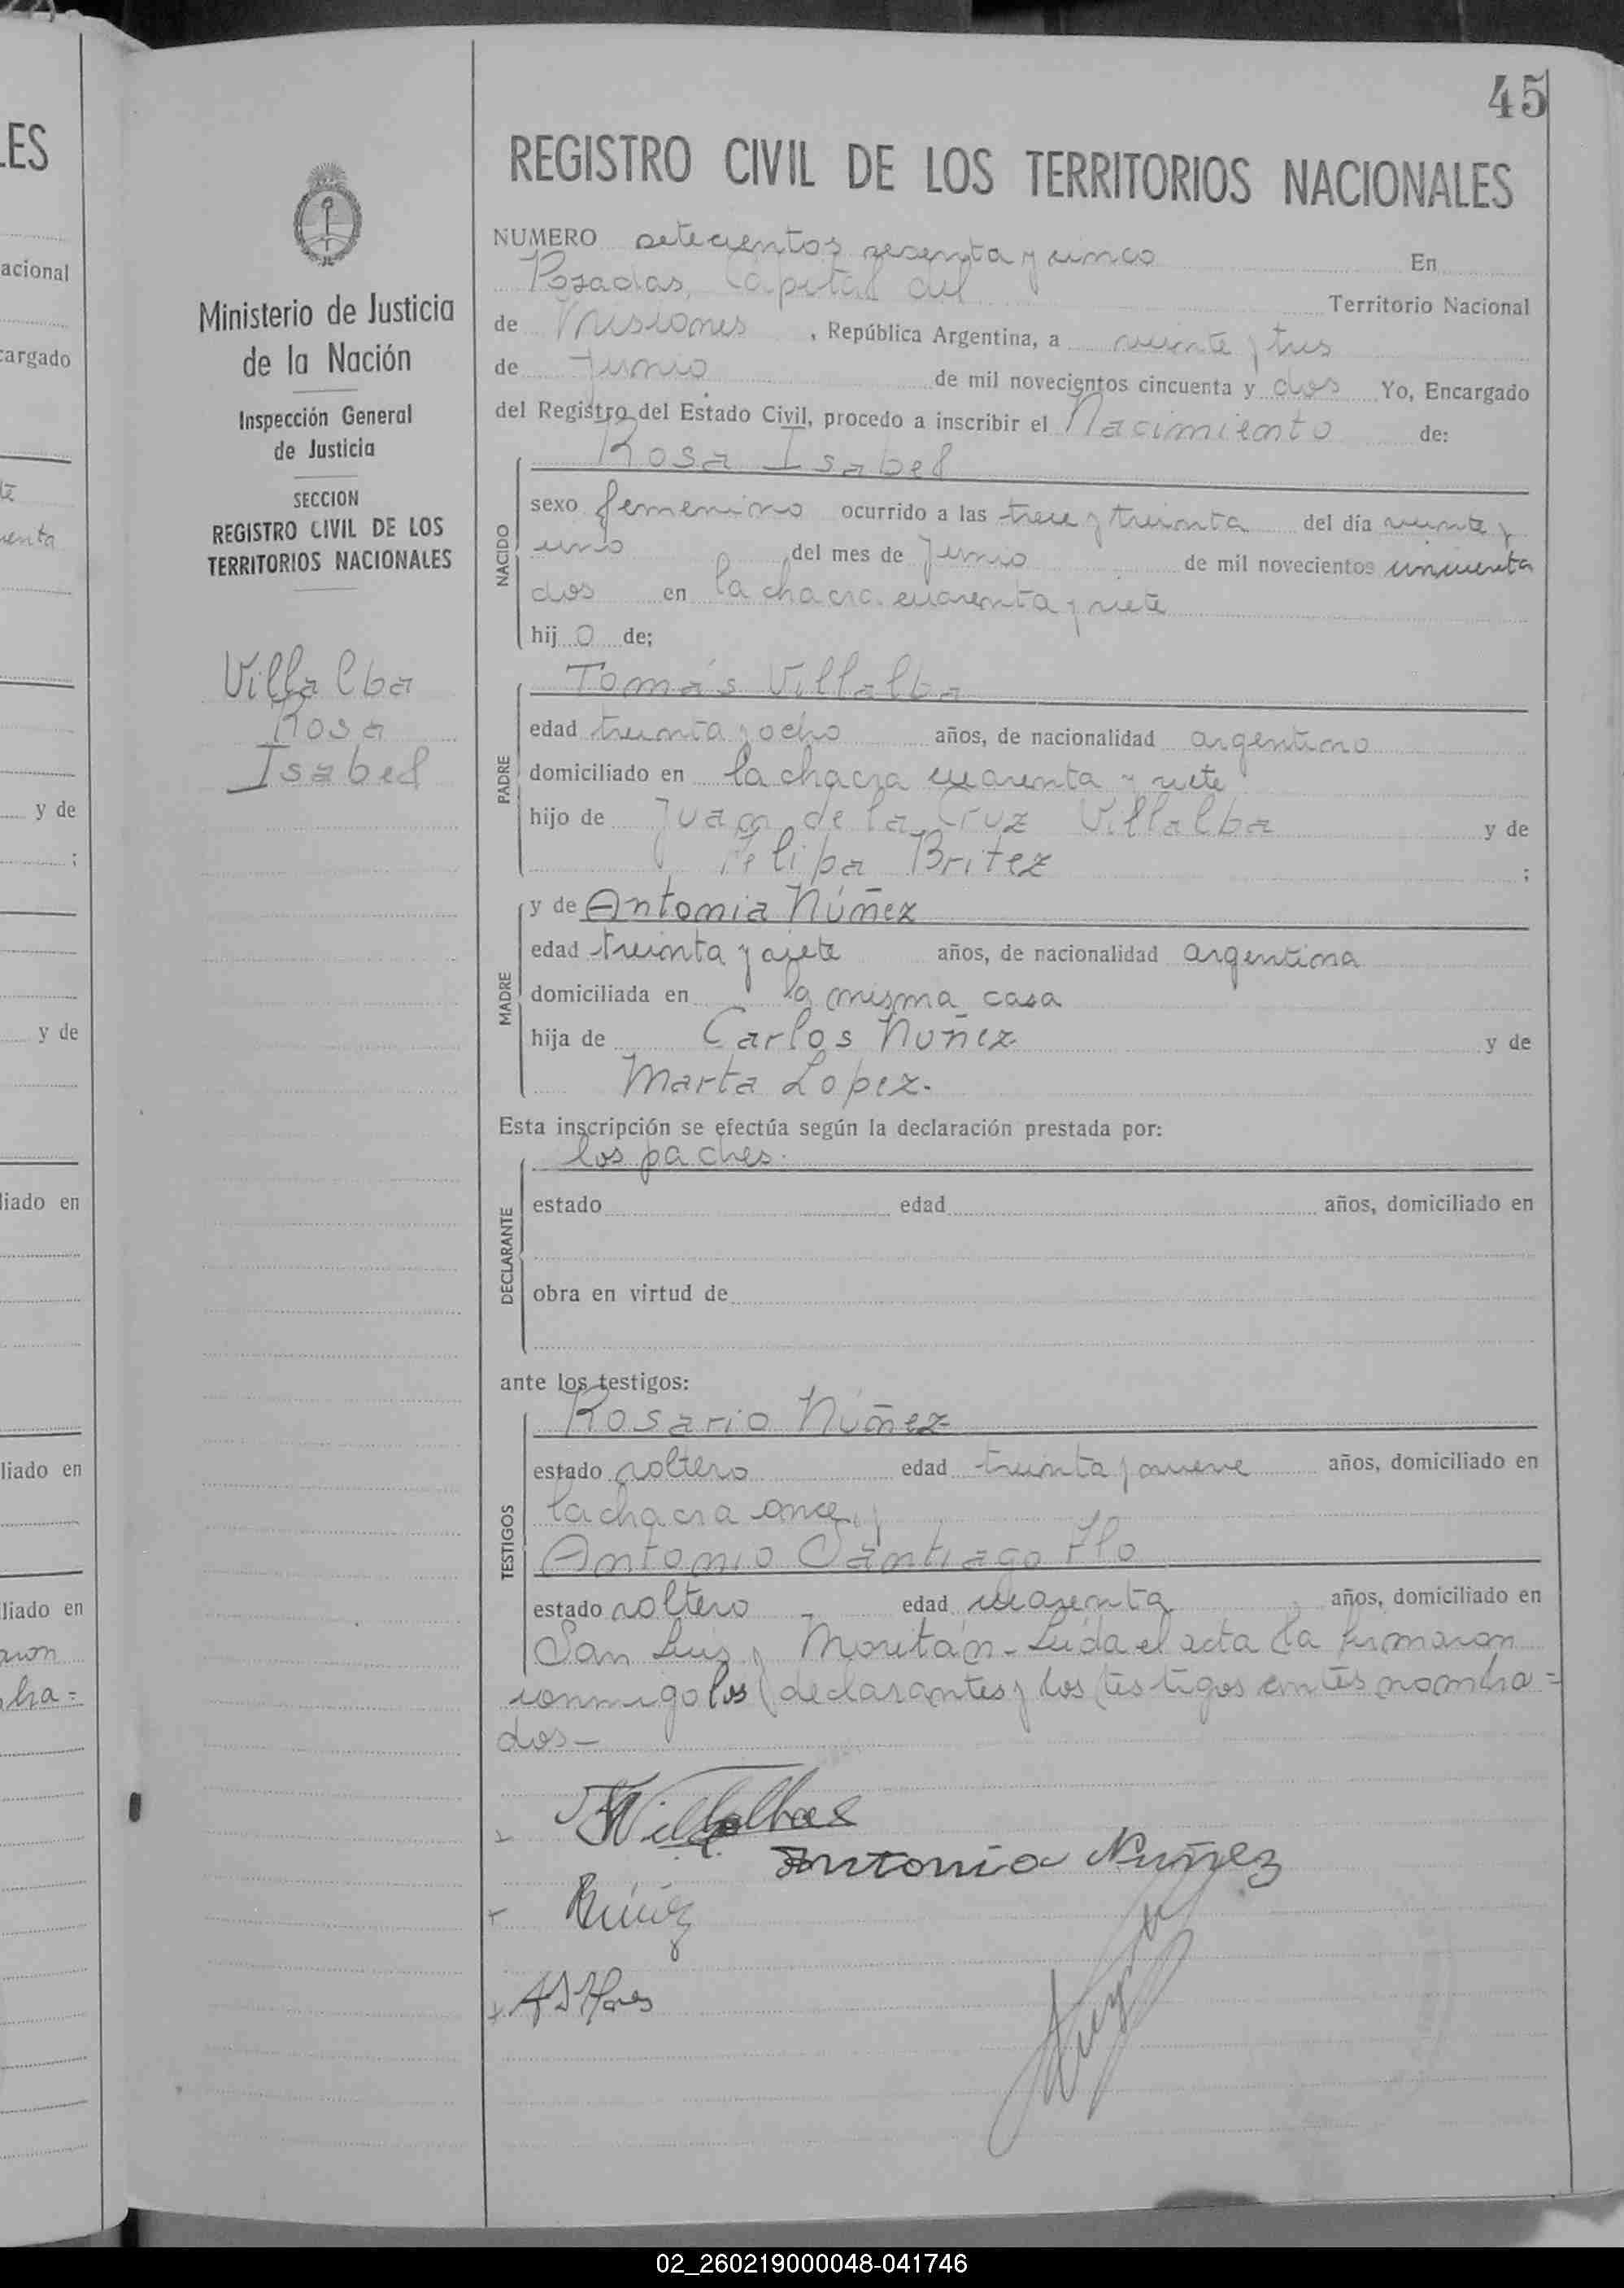 45
ES
REGISTRO CIVIL DE LOS TERRITORIOS NACIONALES
acional
cargado
y de
;
y de
liado en
liado en
liado en
Ministerio de Justicia
de la Nación
Inspección General
de Justicia
SECCION
REGISTRO CIVIL DE LOS
TERRITORIOS NACIONALES
Villalba
Rosa
Isabel
NUMERO setecientos sesenta y cinco En
Posadas, Capital del Territorio Nacional
de Misiones, República Argentina, a veinte y tres
de Junio de mil novecientos cincuenta y dos Yo, Encargado
del Registro del Estado Civil, procedo a inscribir el Nacimiento de:
Rosa Isabel
NACIDO
sexo femenino ocurrido a las trece y treinta del día veinte y
uno del mes de Junio de mil novecientos cincuenta
dos en la chacra cuarenta y siete
hij o de;
Tomás Villalba
PADRE
edad treinta y ocho años, de nacionalidad argentino
domiciliado en la chacra cuarenta y siete
hijo de Juan de la Cruz Villalba y de
Felipa Britez ;
MADRE
y de Antonia Núñez
edad treinta y siete años, de nacionalidad argentina
domiciliada en la misma casa
hija de Carlos Nuñez y de
Marta Lopez.
Esta inscripción se efectúa según la declaración prestada por:
los padres.
DECLARANTE
estado edad años, domiciliado en
obra en virtud de
ante los testigos:
Rosario Núñez
TESTIGOS
estado soltero edad treinta y nueve años, domiciliado en
la chacra once, y
Antonio Santiago Flo
estado soltero edad cuarenta años, domiciliado en
San Luis y Moritán - Leída el acta la firmaron
conmigo los declarantes y los testigos antes nombra=
dos-
Antonia Nuñez
02_260219000048-041746